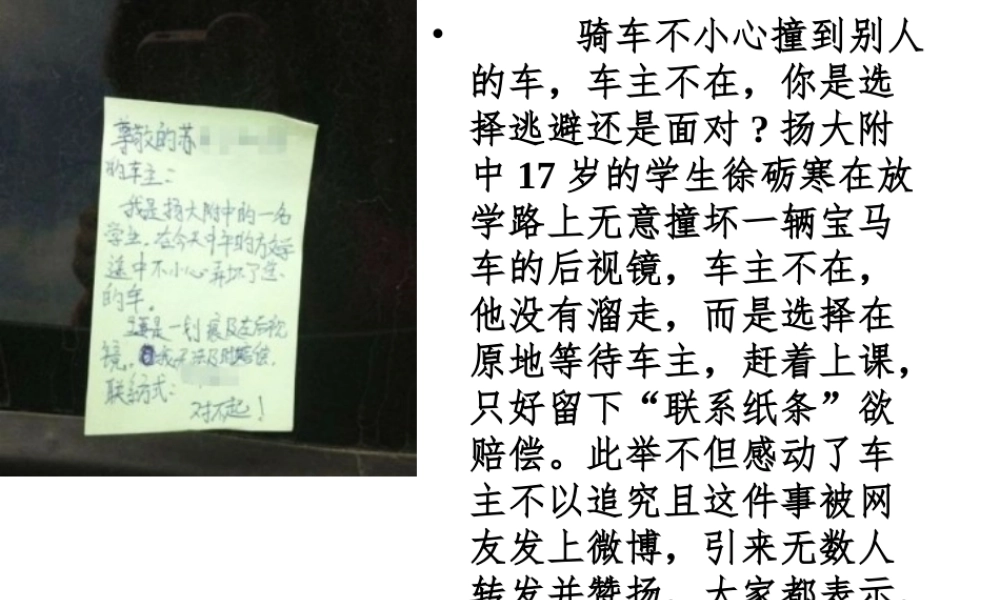 尊敬的苏
的车主：
我是扬大附中的一名
学生，在今天中午的放学
途中不小心弄坏了您
的车。
主要是一划痕及左后视
镜。我无法及时赔偿，
联系方式：
对不起！
• 骑车不小心撞到别人
的车，车主不在，你是选
择逃避还是面对？扬大附
中 17 岁的学生徐砺寒在放
学路上无意撞坏一辆宝马
车的后视镜，车主不在，
他没有溜走，而是选择在
原地等待车主，赶着上课，
只好留下“联系纸条”欲
赔偿。此举不但感动了车
主不以追究且这件事被网
友发上微博，引来无数人
转发并赞扬，大家都表示，